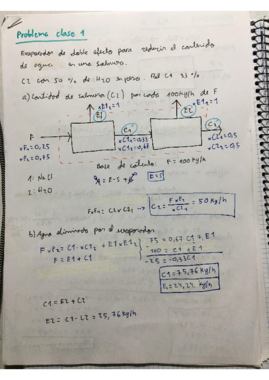 Problema clase 1
Evaporador de doble efecto para reducir el contenido
de agua en una salmuera.
C2 con 50 % de H2O en peso. C1 33 %
a) Cantidad de salmuera (C2) por cada 100 kg/h de F
xE1=1 xE2=1
E1 E2
F C1 C2
xF1=0,25 xC1=0,33 xC21=0,5
xF2=0,75 xC12=0,67 xC22=0,5
Base de cálculo F=100 kg/h
1: NaCl
2: H2O
E=S
F·xF1 = C2·xC21 → C2 = F·xF1 / xC21 = 50 kg/h
b) Agua eliminada por el evaporador
F·xF2 = C1·xC12 + E1·xE12 75 = 0,67 C1 + E1
F = E1 + C1 100 = C1 + E1
-25 = -0,33C1
C1 = 75,76 kg/h
E1 = 24,24 kg/h
C1 = E2 + C2
E2 = C1 - C2 = 25,76 kg/h